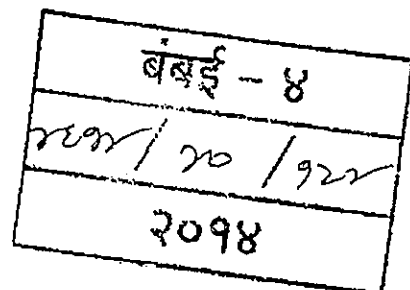 बंबई - ४
/ २० / १२२
२०१४